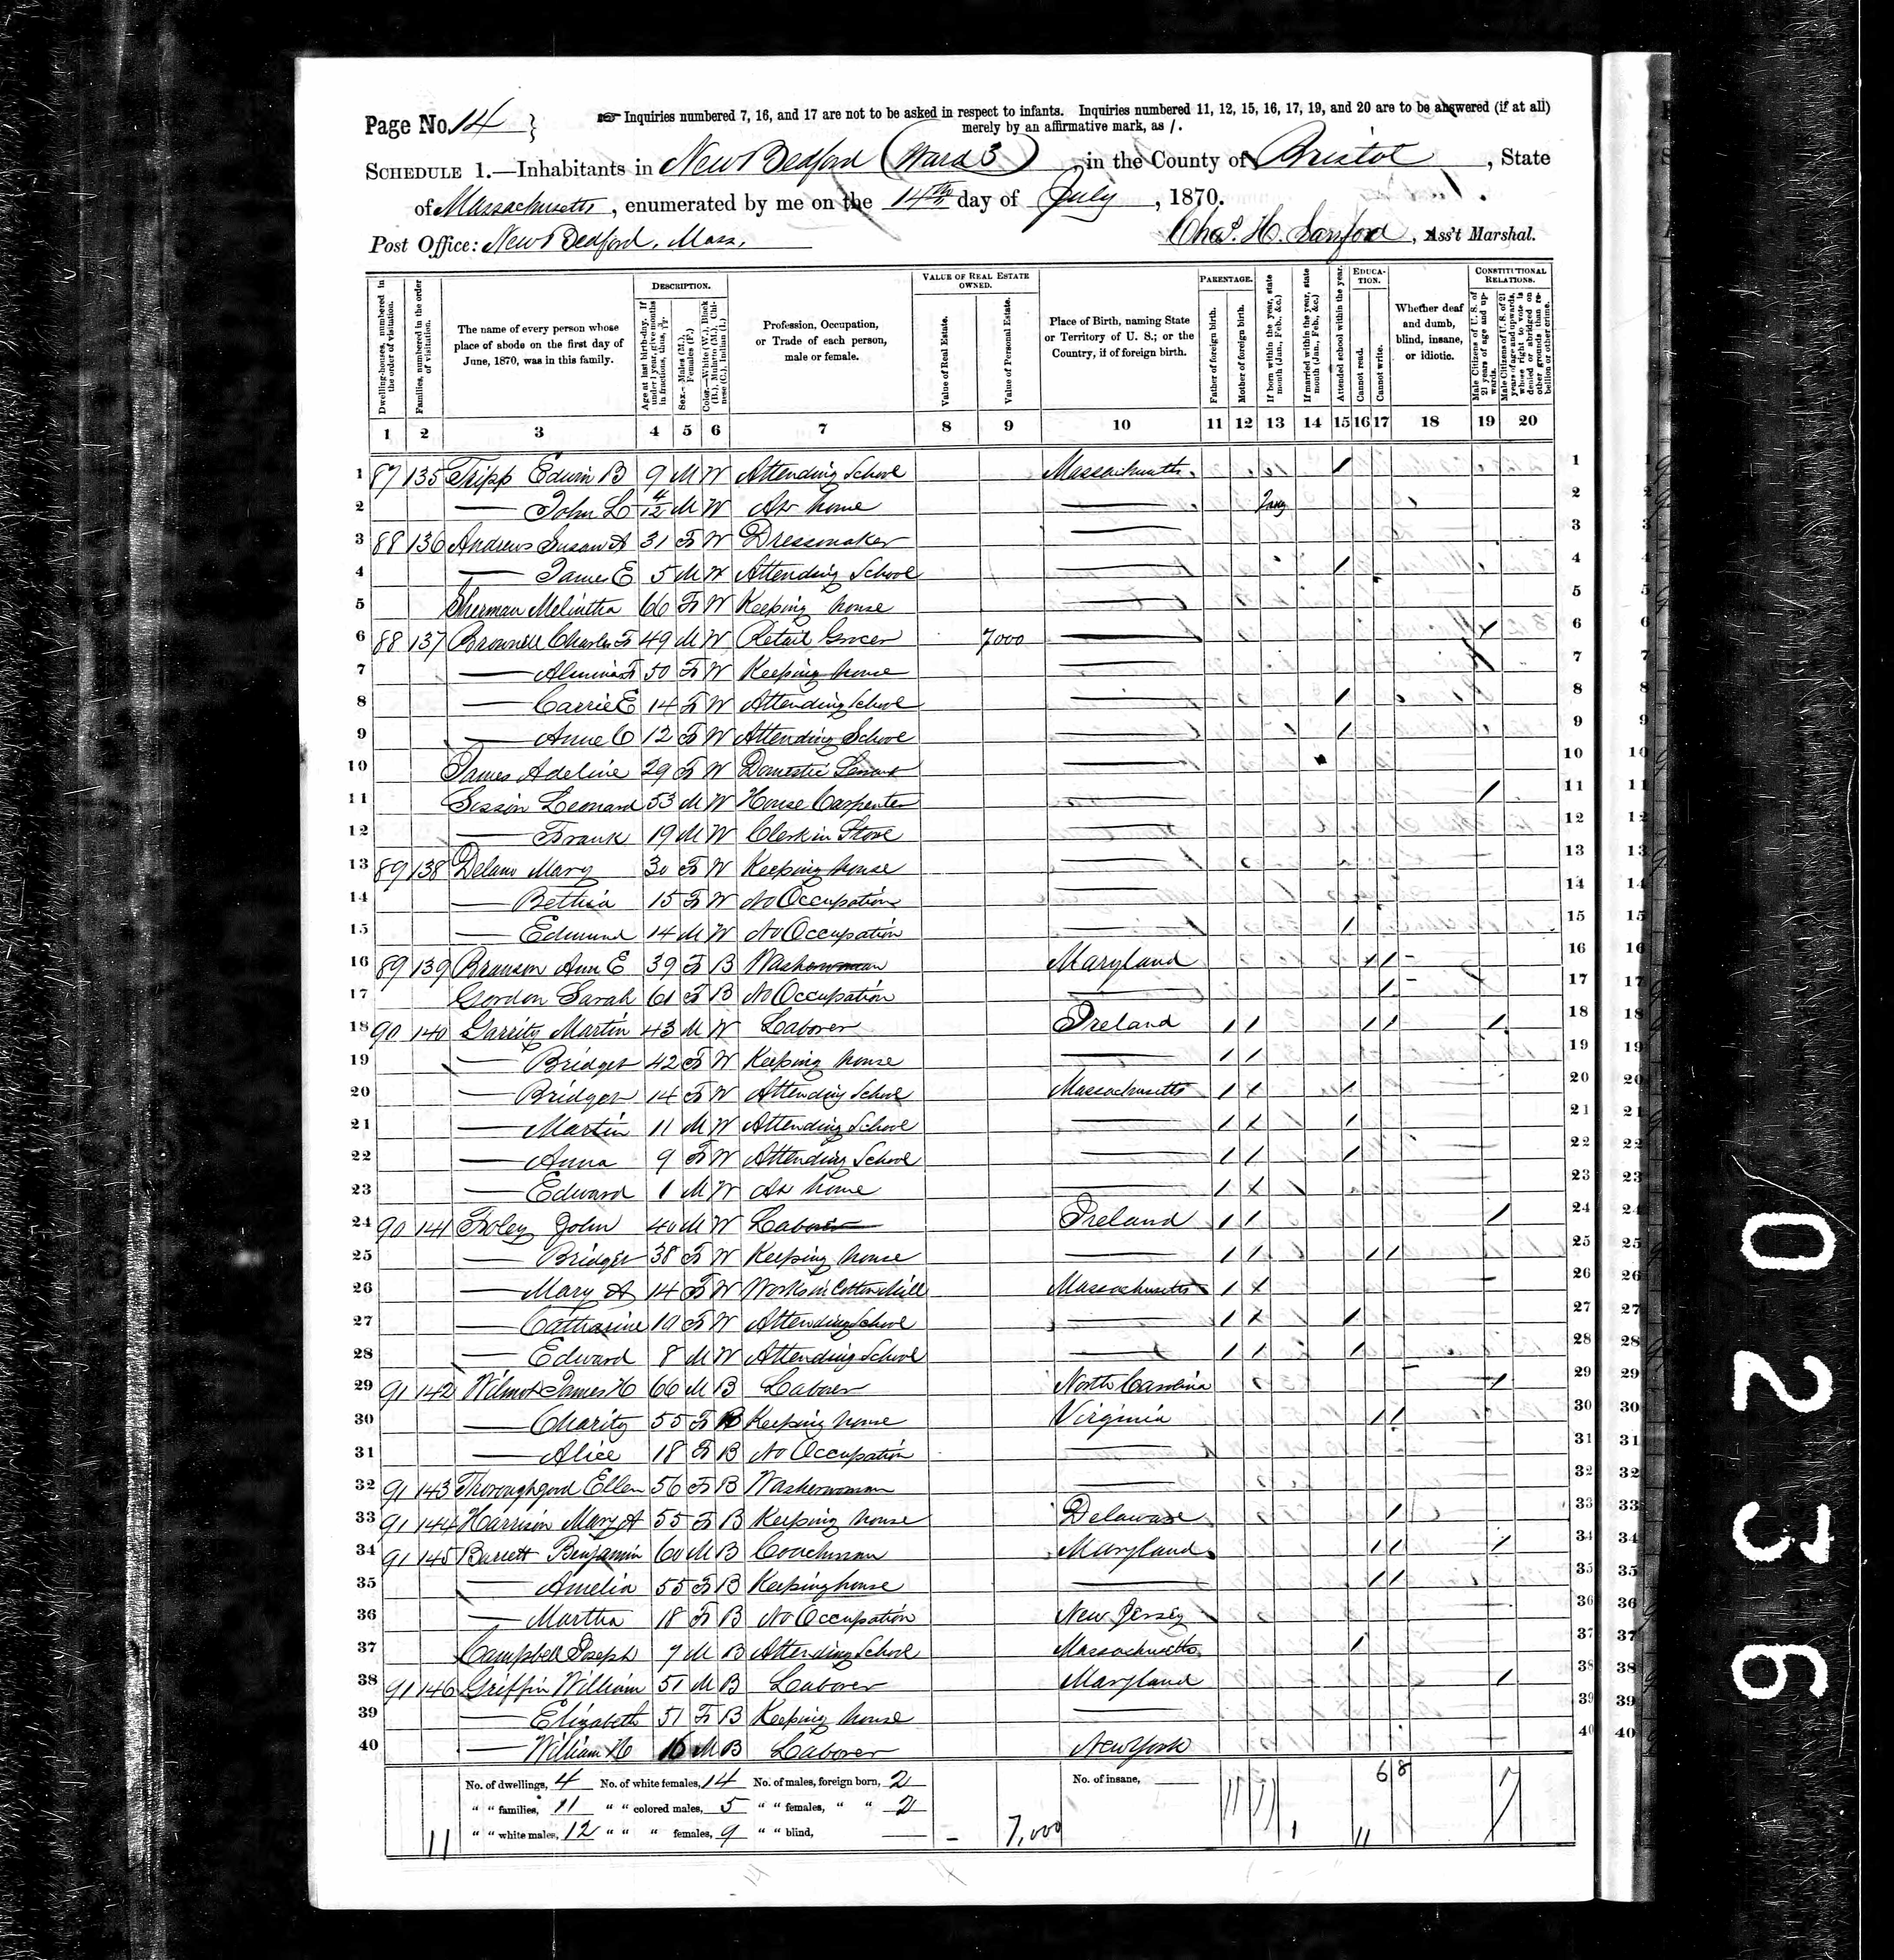 Page No. 14
Inquiries numbered 7, 16, and 17 are not to be asked in respect to infants. Inquiries numbered 11, 12, 15, 16, 17, 19, and 20 are to be answered (if at all)
merely by an affirmative mark, as /.
SCHEDULE 1.—Inhabitants in New Bedford (Ward 3), in the County of Bristol, State
of Massachusetts, enumerated by me on the 14th day of July, 1870.
Post Office: New Bedford, Mass,
Chas. H. Sanford, Ass't Marshal.
Dwelling-houses, numbered in the order of visitation.
Families, numbered in the order of visitation.
The name of every person whose place of abode on the first day of June, 1870, was in this family.
DESCRIPTION.
Age at last birth-day. If under 1 year, give months in fractions, thus, 3/12.
Sex.—Males (M.), Females (F.)
Color.—White (W.), Black (B.), Mulatto (M.), Chinese (C.), Indian (I.)
Profession, Occupation, or Trade of each person, male or female.
VALUE OF REAL ESTATE OWNED.
Value of Real Estate.
Value of Personal Estate.
Place of Birth, naming State or Territory of U. S.; or the Country, if of foreign birth.
PARENTAGE.
Father of foreign birth.
Mother of foreign birth.
If born within the year, state month (Jan., Feb., &c.)
If married within the year, state month (Jan., Feb., &c.)
Attended school within the year.
EDUCATION.
Cannot read.
Cannot write.
Whether deaf and dumb, blind, insane, or idiotic.
CONSTITUTIONAL RELATIONS.
Male Citizens of U. S. of 21 years of age and upwards.
Male Citizens of U. S. of 21 years of age and upwards, whose right to vote is denied or abridged on other grounds than rebellion or other crime.
1 2 3 4 5 6 7 8 9 10 11 12 13 14 15 16 17 18 19 20
1 87 135 Tripp Edwin B 9 M W Attending School Massachusetts / 1
2 — John L 4/12 M W At home — 2
3 88 136 Andrews Susan A 31 F W Dressmaker — 3
4 — James E 5 M W Attending School — / 4
5 Sherman Melintha 66 F W Keeping house — 5
6 88 137 Brownell Charles F 49 M W Retail Grocer 7000 — / 6
7 — Almina F 50 F W Keeping house — 7
8 — Carrie E 14 F W Attending School — / 8
9 — Anne C 12 F W Attending School — / 9
10 James Adeline 29 F W Domestic Servant — 10
11 Sisson Leonard 53 M W House Carpenter — / 11
12 — Frank 19 M W Clerk in Store — 12
13 89 138 Delano Mary 30 F W Keeping house — 13
14 — Bethia 15 F W No Occupation — 14
15 — Edmund 14 M W No Occupation — / 15
16 89 139 Branson Ann E 39 F B Washerwoman Maryland / / 16
17 Gordon Sarah 61 F B No Occupation — / 17
18 90 140 Garrity Martin 43 M W Laborer Ireland / / / / / 18
19 — Bridget 42 F W Keeping house — / / 19
20 — Bridget 14 F W Attending School Massachusetts / / / 20
21 — Martin 11 M W Attending School — / / / 21
22 — Anna 9 F W Attending School — / / / 22
23 — Edward 1 M W At home — / / 23
24 90 141 Foley John 40 M W Laborer Ireland / / / 24
25 — Bridget 38 F W Keeping house — / / / / 25
26 — Mary A 14 F W Works in Cotton Mill Massachusetts / / 26
27 — Catharine 10 F W Attending School — / / / 27
28 — Edward 8 M W Attending School — / / / 28
29 91 142 Wilmot James H 66 M B Laborer North Carolina / 29
30 — Charity 55 F B Keeping house Virginia / / 30
31 — Alice 18 F B No Occupation — 31
32 91 143 Thoroughgood Ellen 56 F B Washerwoman — 32
33 91 144 Harrison Mary A 55 F B Keeping house Delaware / 33
34 91 145 Barrett Benjamin 60 M B Coachman Maryland / / / 34
35 — Amelia 55 F B Keeping house — / / 35
36 — Martha 18 F B No Occupation New Jersey 36
37 Campbell Joseph 7 M B Attending School Massachusetts / 37
38 91 146 Griffin William 51 M B Laborer Maryland / 38
39 — Elizabeth 51 F B Keeping house — 39
40 — William H 16 M B Laborer New York 40
No. of dwellings, 4 No. of white females, 14 No. of males, foreign born, 2 No. of insane, — 6 8
" " families, 11 " " colored males, 5 " " females, " " 2
11 " " white males, 12 " " " females, 9 " " blind, — – 7,000 1 11 7
0236